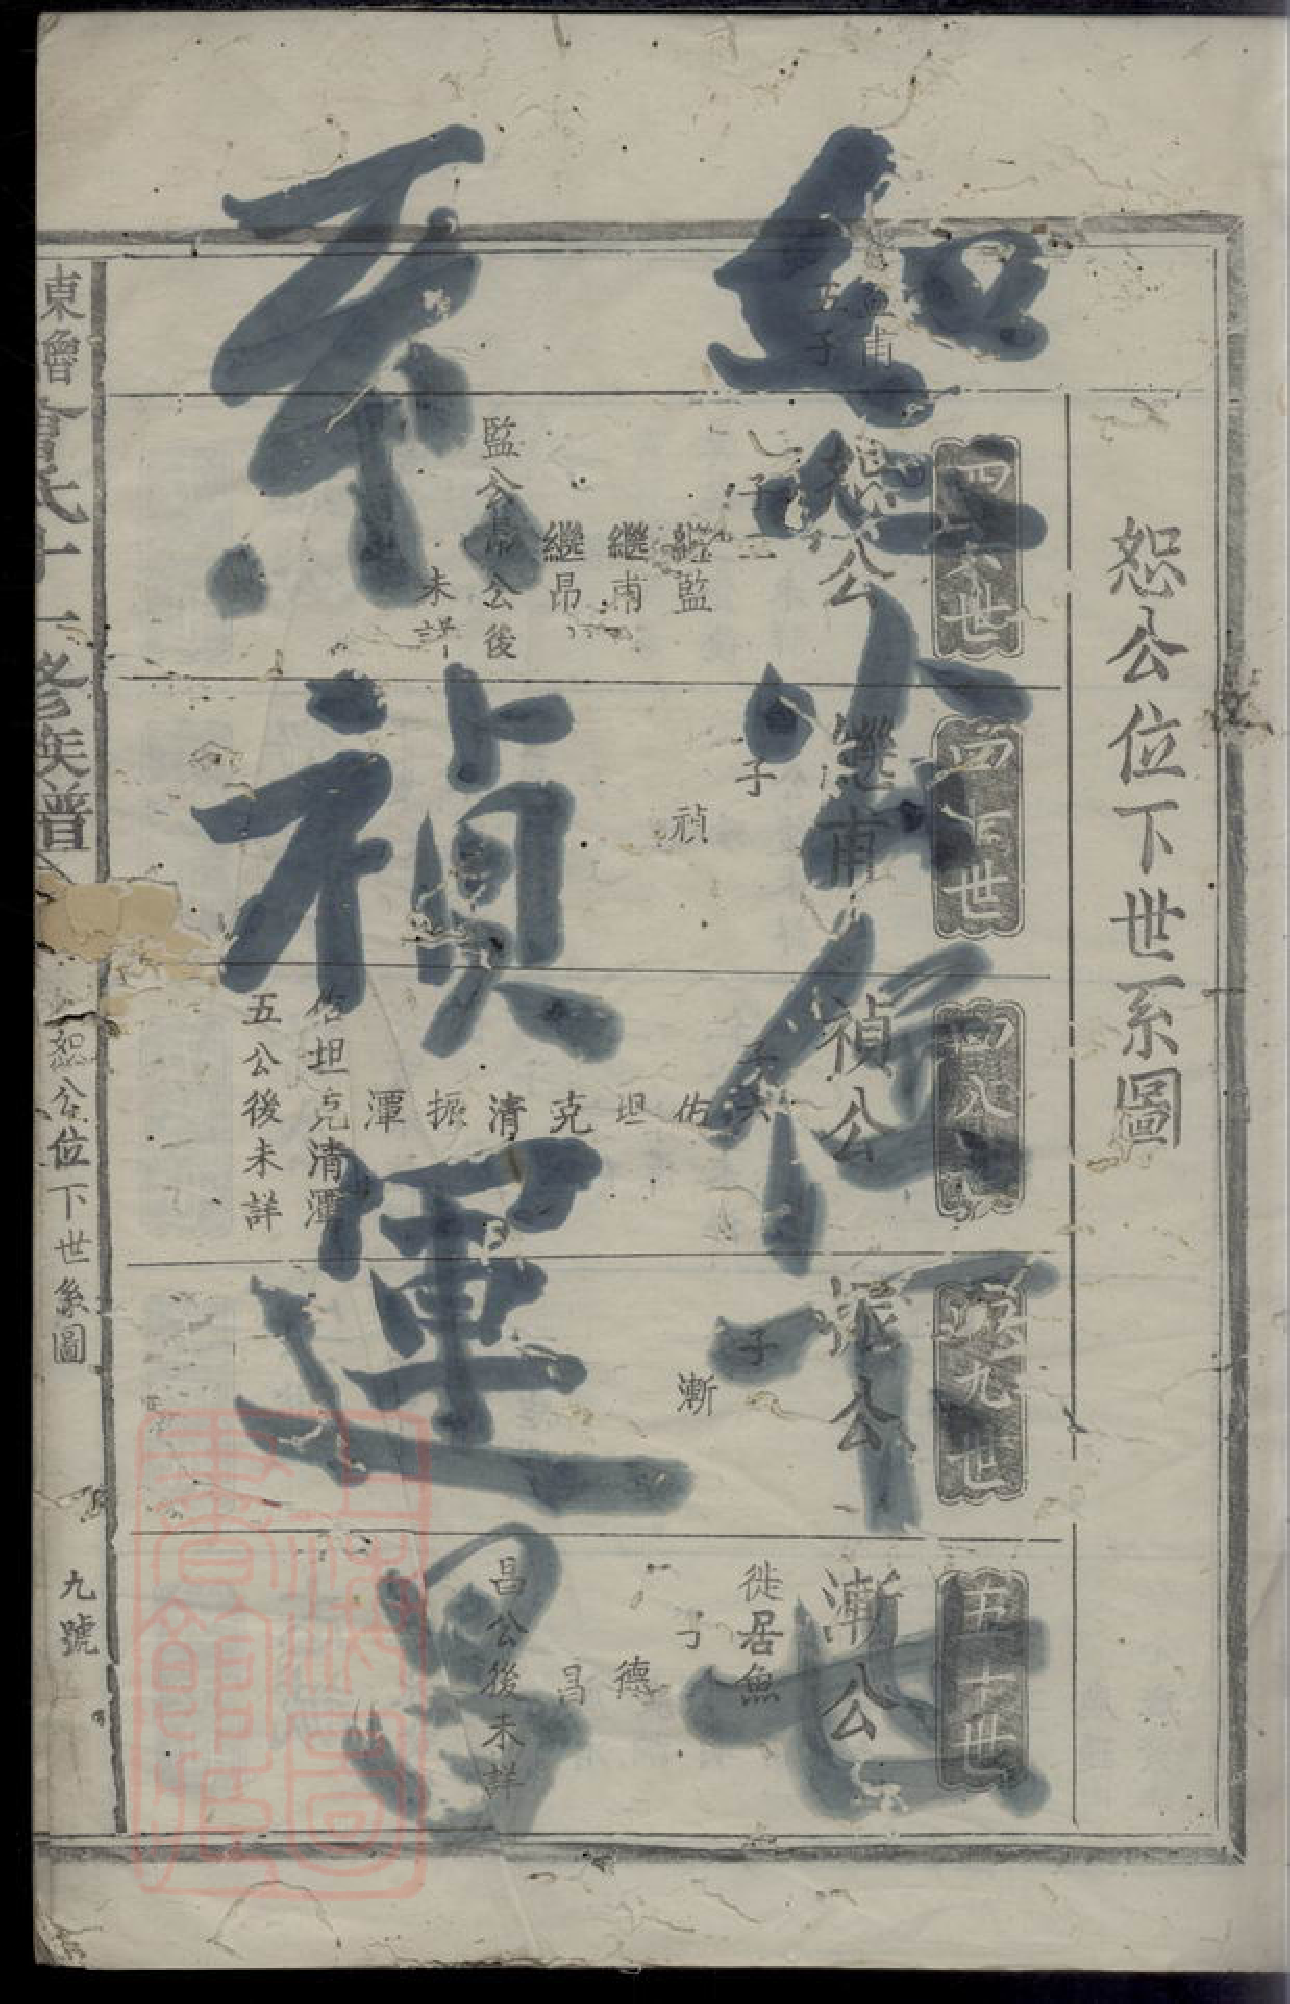 恕公位下世系圖
四六世
四七世
四八世
四九世
五十世
孟甫
五子
恕公
子三
繼監
繼甫
繼昂
監公昂公後
未詳
繼甫
子
禎
禎公
子六
佑
坦
克
清
振
潭
佑坦克清潭
五公後未詳
振公
子
漸
漸公
徙居魚
子
德
昌
昌公後未詳
恕公位下世
系禎運昌
東魯曾氏十一修族譜
恕公位下世系圖
九號
上海圖書館藏